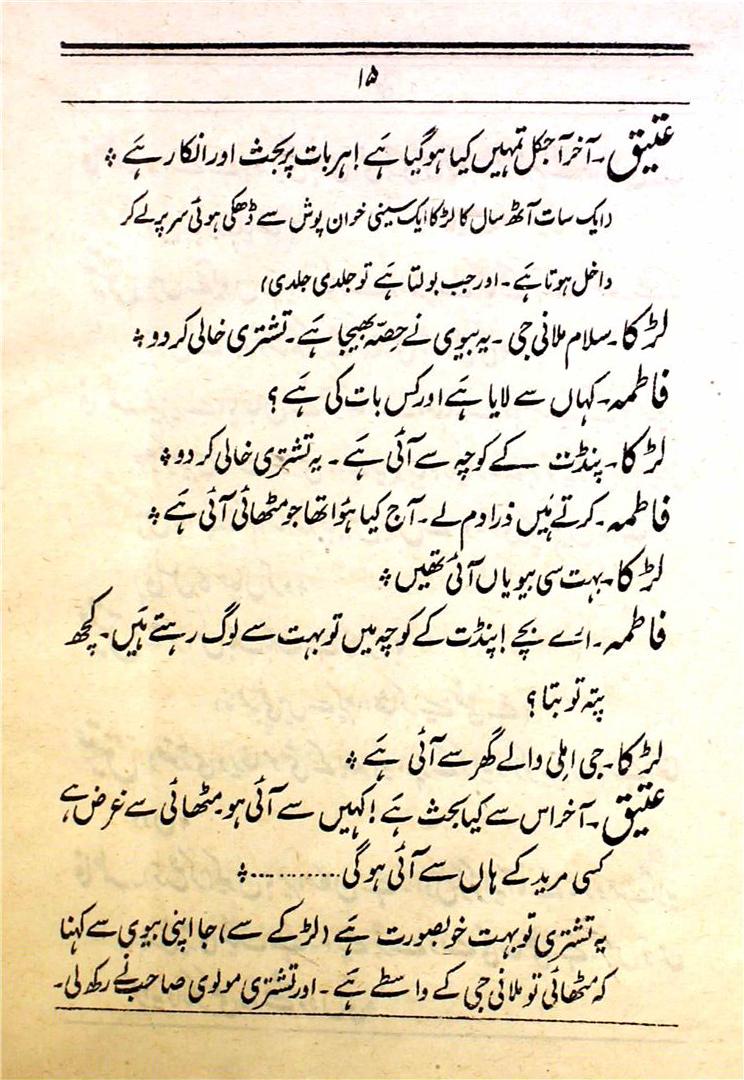 ۱۵
عتیق۔ آخر آجکل تمہیں کیا ہوگیا ہے! ہر بات پر بحث اور انکار ہے ÷
(ایک سات آٹھ سال کا لڑکا ایک سینی خوان پوش سے ڈھکی ہوئی سر پر لے کر
داخل ہوتا ہے۔ اور جب بولتا ہے تو جلدی جلدی)
لڑکا۔ سلام ملانی جی۔ یہ بیوی نے حصّہ بھیجا ہے۔ تشتری خالی کر دو ÷
فاطمہ۔ کہاں سے لایا ہے اور کس بات کی ہے؟
لڑکا۔ پنڈت کے کوچہ سے آئی ہے۔ یہ تشتری خالی کر دو ÷
فاطمہ۔ کرتے ہیں ذرا دم لے۔ آج کیا ہؤا تھا جو مٹھائی آئی ہے ÷
لڑکا۔ بہت سی بیویاں آئی تھیں ÷
فاطمہ۔ اے بچے! پنڈت کے کوچہ میں تو بہت سے لوگ رہتے ہیں۔ کچھ
پتہ تو بتا؟
لڑکا۔ جی املی والے گھر سے آئی ہے ÷
عتیق۔ آخر اس سے کیا بحث ہے! کہیں سے آئی ہو۔ مٹھائی سے غرض ہے
کسی مرید کے ہاں سے آئی ہوگی ............ ÷
یہ تشتری تو بہت خوبصورت ہے (لڑکے سے) جا اپنی بیوی سے کہنا
کہ مٹھائی تو ملانی جی کے واسطے ہے۔ اور تشتری مولوی صاحب نے رکھ لی۔